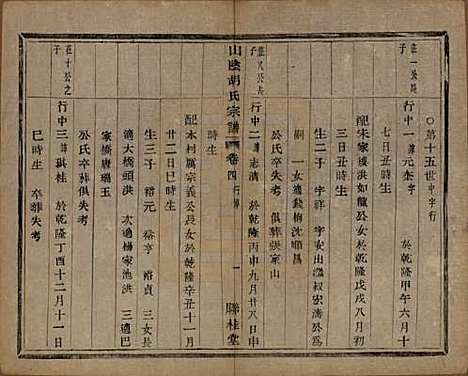 ○第十五世 中字行
莊一公長子
行中一 諱元奎 字 於乾隆甲午六月十
七日丑時生
配朱家溇洪如龍公女於乾隆戊戌八月初
三日丑時生
生二子 字祥 字安出繼叔宏濤公
嗣 一女適錢梅沈順昌
公氏卒失考 俱葬張家山
莊八公長子
行中二 諱志清 於乾隆丙申九月廿八日申
時生
山陰胡氏宗譜
卷四 行傳
一
聯桂堂
配本村厲宗義公女於乾隆辛丑十一月
廿二日巳時生
生三子 裕元 裕亨 裕貞 三女長
適大橋頭洪 次適楊家池洪 三適巴
家橋唐瑞玉
公氏卒葬俱失考
莊十公之子
行中三 諱琪桂 於乾隆丁酉十二月十一日
巳時生 卒葬失考